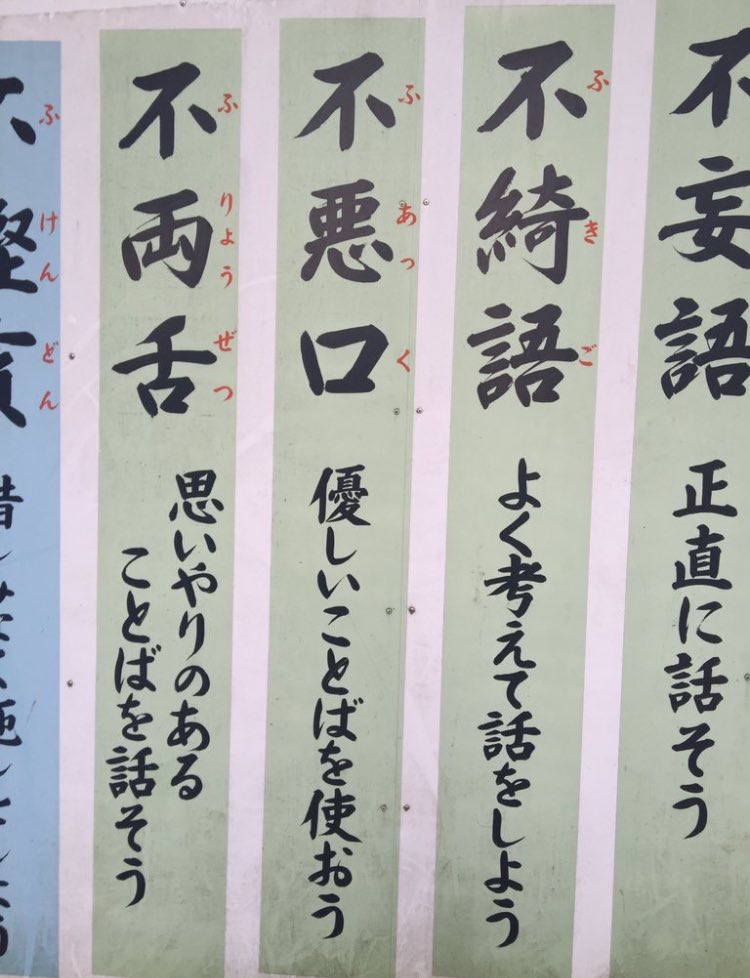 不妄語
正直に話そう
不綺語
ふきご
よく考えて話をしよう
不悪口
ふあっく
優しいことばを使おう
不両舌
ふりょうぜつ
思いやりのある
ことばを話そう
ふけんどん